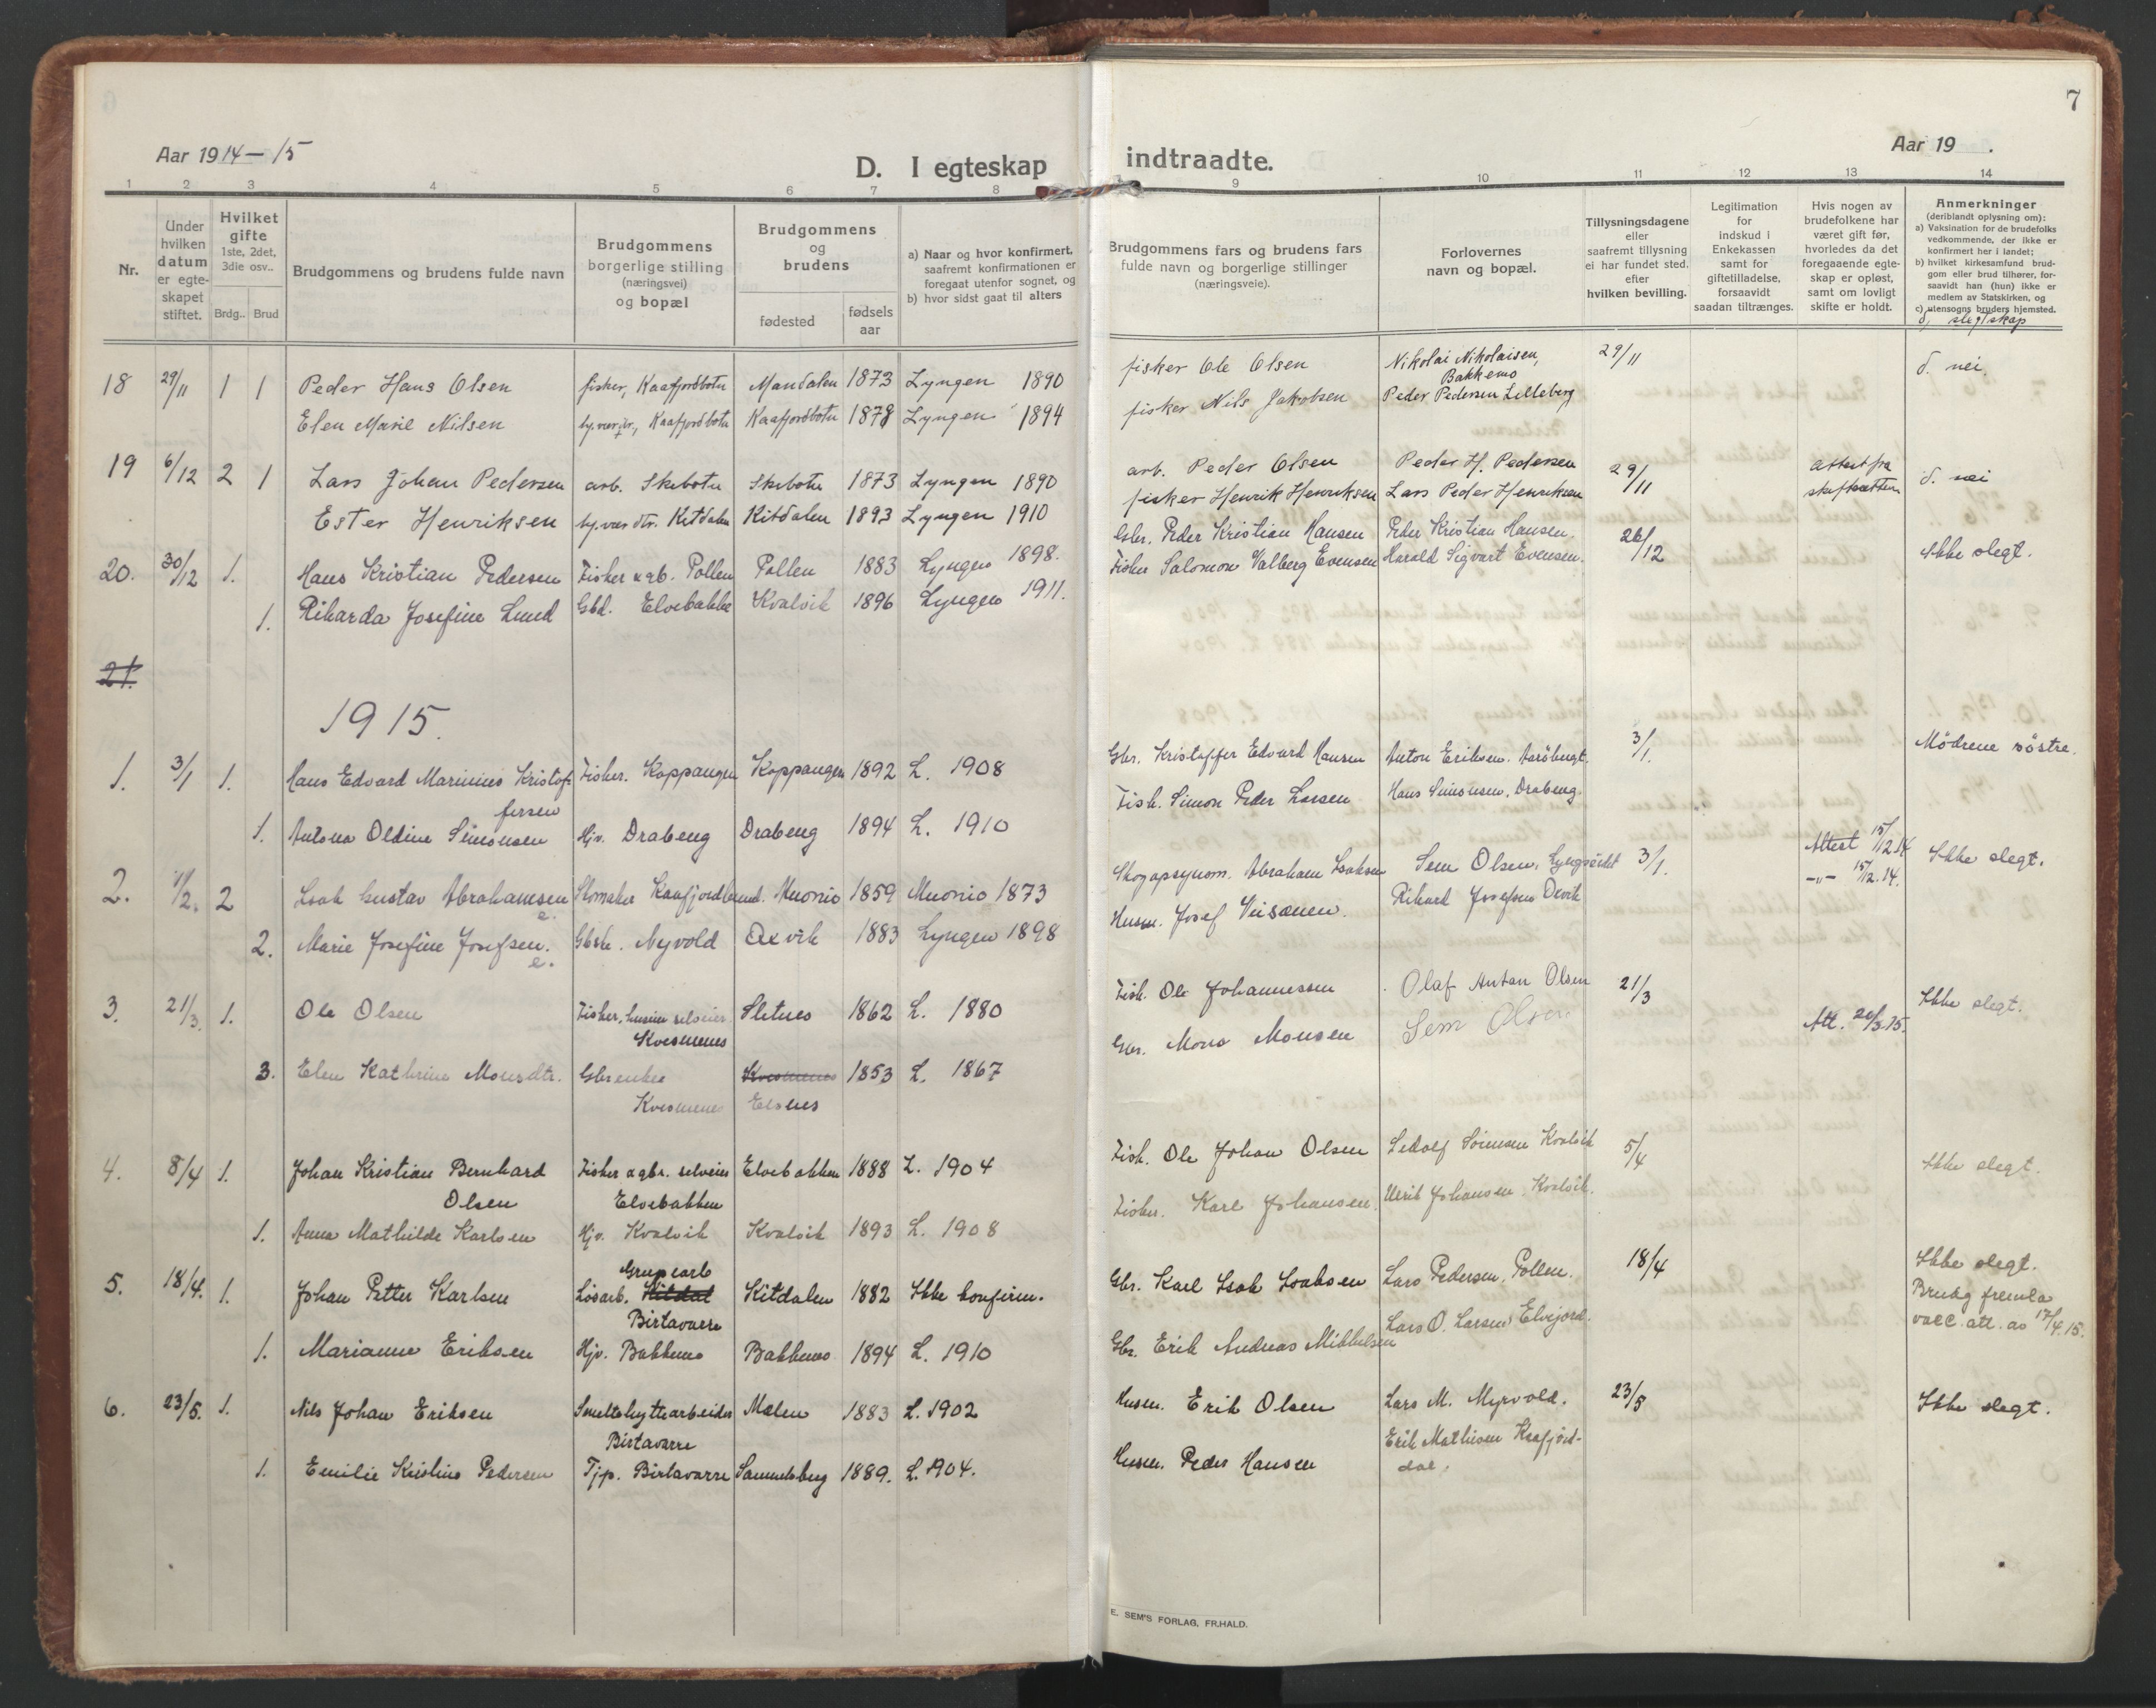 7
Aar 1914 – 15
Aar 19 .
D. I egteskap
indtraadte.
1 2 3 4 5 6 7 8 9 10 11 12 13 14
Nr.
Under hvilken datum er egte-skapet stiftet.
Hvilket gifte 1ste, 2det, 3die osv..
Brdg.. Brud
Brudgommens og brudens fulde navn
Brudgommens borgerlige stilling (næringsvei) og bopæl
Brudgommens og brudens
fødested
fødsels aar
a) Naar og hvor konfirmert, saafremt konfirmationen er foregaat utenfor sognet, og
b) hvor sidst gaat til alters
Brudgommens fars og brudens fars fulde navn og borgerlige stillinger (næringsveie).
Forlovernes navn og bopæl.
Tillysningsdagene eller saafremt tillysning ei har fundet sted. efter hvilken bevilling.
Legitimation for indskud i Enkekassen samt for giftetilladelse, forsaavidt saadan tiltrænges.
Hvis nogen av brudefolkene har været gift før, hvorledes da det foregaaende egte-skap er opløst, samt om lovligt skifte er holdt.
Anmerkninger (deriblandt oplysning om):
a) Vaksination for de brudefolks vedkommende, der ikke er konfirmert her i landet;
b) hvilket kirkesamfund brud-gom eller brud tilhører, for-saavidt han (hun) ikke er medlem av Statskirken, og
c) utensogns bruders hjemsted.
d, slegtskap
18 29/11 1 1 Peder Hans Olsen fisker, Kaafjordbotn Mandalen 1873 Lyngen 1890 fisker Ole Olsen Nikolai Nikolaisen, Bakkemo 29/11 d. nei.
Elen Marie Nilsen Kaafjordbotn Kaafjordbotn 1878 Lyngen 1894 fisker Nils Jakobsen Peder Pedersen Lilleberg
19 6/12 2 1 Lars Johan Pedersen arb. Skibotn Skibotn 1873 Lyngen 1890 arb. Peder Olsen Peder H. Pedersen 29/11 attest fra skifteretten d. nei
Ester Henriksen Kitdalen Kitdalen 1893 Lyngen 1910 fisker Henrik Henriksen Lars Peder Henriksen
20. 30/12 1. Hans Kristian Pedersen Fisker & gb. Pollen Pollen 1883 Lyngen 1898. Gbr. Peder Kristian Hansen Peder Kristian Hansen. 26/12 Ikke slegt.
1. Rikarda Josefine Lund Gbd. Elvebakke Kvalvik 1896 Lyngen 1911. Fisker Salomon Valberg Evensen Harald Sigvart Evensen.
21.
1915.
1. 3/1 1. Hans Edvard Marinius Kristof-fersen Fisker. Koppangen Koppangen 1892 L. 1908 Gbr. Kristoffer Edvard Hansen Anton Eriksen. 3/1. Mødrene søstre.
1. Antona Oldine Simonsen Hjv. Drabeng Drabeng 1894 L. 1910 Fisk. Simon Peder Larsen Hans Simonsen, Drabeng.
2. 2 Isak Gustav Abrahamsen e. Skomaker Kaafjordbund. Muonio 1859 Muonio 1873 Abraham Isaksen Sem Olsen, Lyngseidet 3/1. Attest 15/12.14 Ikke slegt.
2. Marie Josefine Josefsen. e. Nyvold Oxvik 1883 Lyngen 1898 Husm. Josef Rikard Josefsen Oxvik –"– 15/12.14.
3. 21/3. 1. Ole Olsen Fisker, husm. selveier Kvesmenes Sletnes 1862 L. 1880 Fisk. Ole Johannessen Olaf Anton Olsen 21/3 Ikke slegt.
3. Elen Kathrine Monsdtr. Gbrenke Kvesmenes Kvesmenes Elsnes 1853 L. 1867 Gbr. Mons Monsen Sem Olsen Att. 20/3.15.
4. 8/4 1. Johan Kristian Bernhard Olsen Fisker & gbr. selveier Elvebakken Elvebakken 1888 L. 1904 Fisk. Ole Johan Olsen Ledolf Sørensen Kvalvik 5/4 Ikke slegt.
1. Anna Mathilde Karlsen Hjv. Kvalvik Kvalvik 1893 L. 1908 Fisker. Karl Johansen. Ulrik Johansen, Kvalvik.
5. 18/4. 1. Johan Petter Karlsen Grubearb Løsarb. Kitdal Birtavarre Kitdalen 1882 Ikke konfirm. Gbr. Karl Isak Isaksen Lars Pedersen, Pollen. 18/4 Ikke slegt. Brudg fremla vacc. att. av 17/4.15.
1. Marianne Eriksen Hjv. Bakkemo Bakkemo 1894 L. 1910 Gbr. Erik Andreas Mikkelsen Lars O. Larsen, Elvejord.
6. 23/5. 1. Nils Johan Eriksen Smeltehyttearbeider Birtavarre Malen 1883 L. 1902 Husm. Erik Olsen Lars M. Myrvold. 23/5 Ikke slegt.
1. Emilie Kristine Pedersen Tjp. Birtavarre Samuelsberg 1889. L. 1904. Husm. Peder Hansen Erik Mathisen Kaafjord-dal.
E. SEM'S FORLAG, FR.HALD.